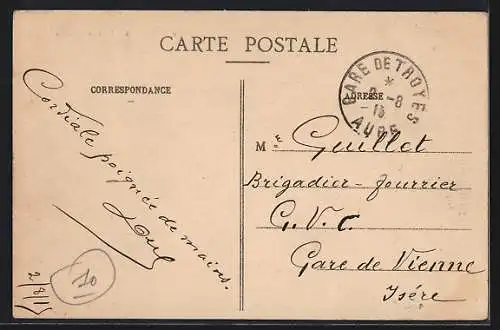 CARTE POSTALE
CORRESPONDANCE
ADRESSE
GARE DE TROYES
*
2-8
15
AUBE
Cordiale poignée de mains.
2/8/15
10
M.e Guillot
Brigadier-fourrier
G.V.C.
Gare de Vienne
Isère